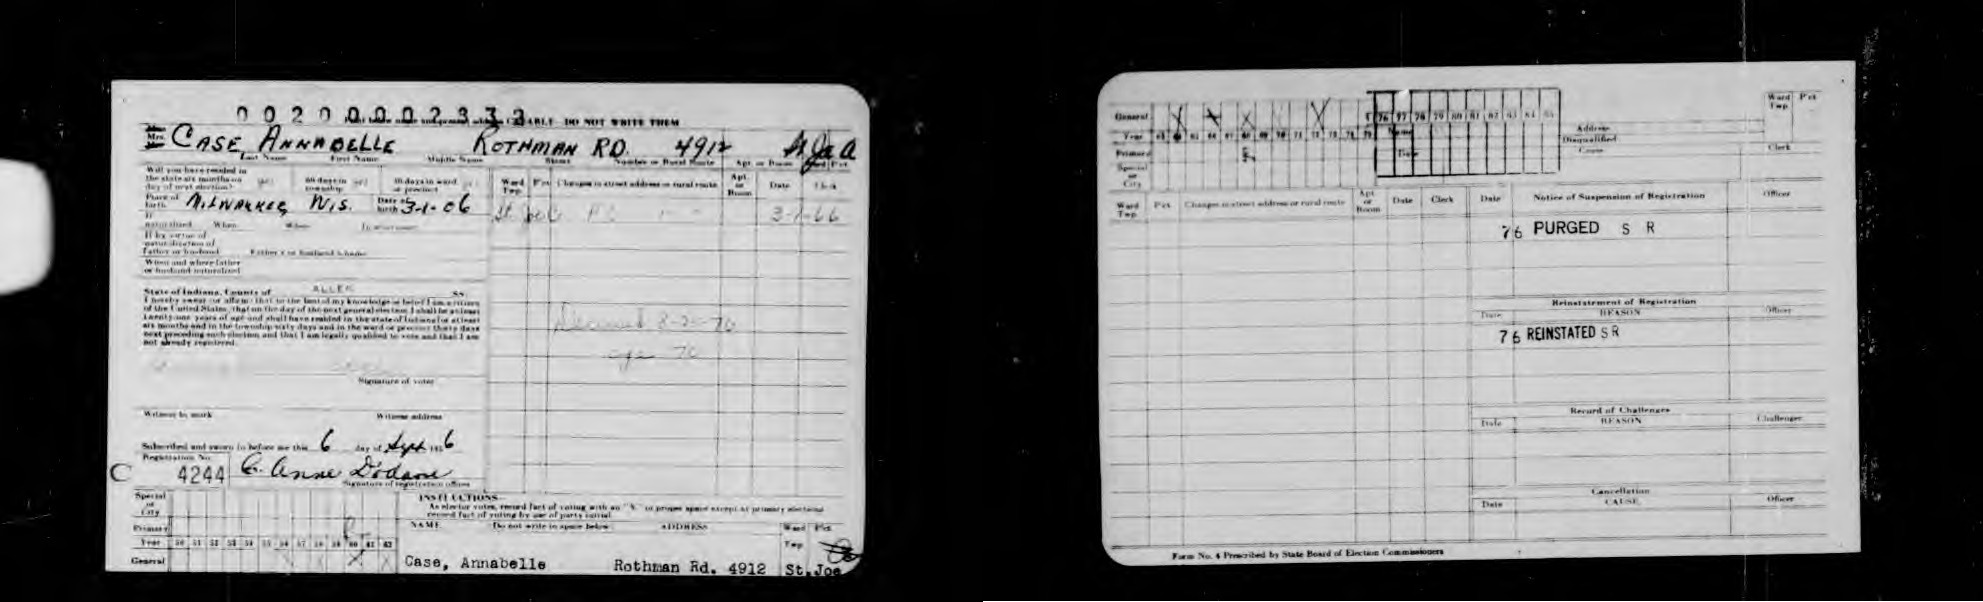 0020002332
CABLE - DO NOT WRITE THEM
Mrs. CASE, ANNABELLE ROTHMAN RD. 4912 St Joe A
Last Name First Name Middle Name Street Number or Rural Route Apt. or Room Ward Pct.
Will you have resided in
the state six months on 60 days in 30 days in ward
day of next election? township or precinct
Place of birth MILWAUKEE, WIS. Date of birth 3-1-06
If naturalized When Where
If by virtue of
naturalization of
Father or husband Father's or husband's name
When and where father
or husband naturalized
State of Indiana, County of ALLEN SS.
I hereby swear (or affirm) that to the best of my knowledge or belief I am a citizen
of the United States, that on the day of the next general election I shall be at least
twenty-one years of age and shall have resided in the state of Indiana for at least
six months and in the township sixty days and in the ward or precinct thirty days
next preceding such election and that I am legally qualified to vote and that I am
not already registered.
Signature of voter
Witness to mark Witness address
Subscribed and sworn to before me this 6 day of Sept 195 6
Registration No.
C 4244 C. Anne Dodane
Signature of registration officer
Ward Twp. Pct. Changes in street address or rural route Apt. or Room Date Clerk
St Joe 3-1-66
Deceased 8-25-76
age 70
Special or City
Primary R
Year 50 51 52 53 54 55 56 57 58 59 60 61 62
General X X X
INSTRUCTIONS
As elector votes, record fact of voting with an "X" in proper space except at primary elections
record fact of voting by use of party initial.
NAME Do not write in space below ADDRESS Ward Twp. Pct.
Case, Annabelle Rothman Rd. 4912 St. Joe
General X X X
Year 63 64 65 66 67 68 69 70 71 72 73 74 75 76 77 78 79 80 81 82 83 84 85
Primary
Special or City
Name
Date
Address
Disqualified
Cause Clerk
Ward Twp. Pct.
Ward Twp. Pct. Changes in street address or rural route Apt. or Room Date Clerk
Date Notice of Suspension of Registration Officer
76 PURGED S R
Reinstatement of Registration
Date REASON Officer
76 REINSTATED S R
Record of Challenges
Date REASON Challenger
Cancellation
Date CAUSE Officer
Form No. 4 Prescribed by State Board of Election Commissioners